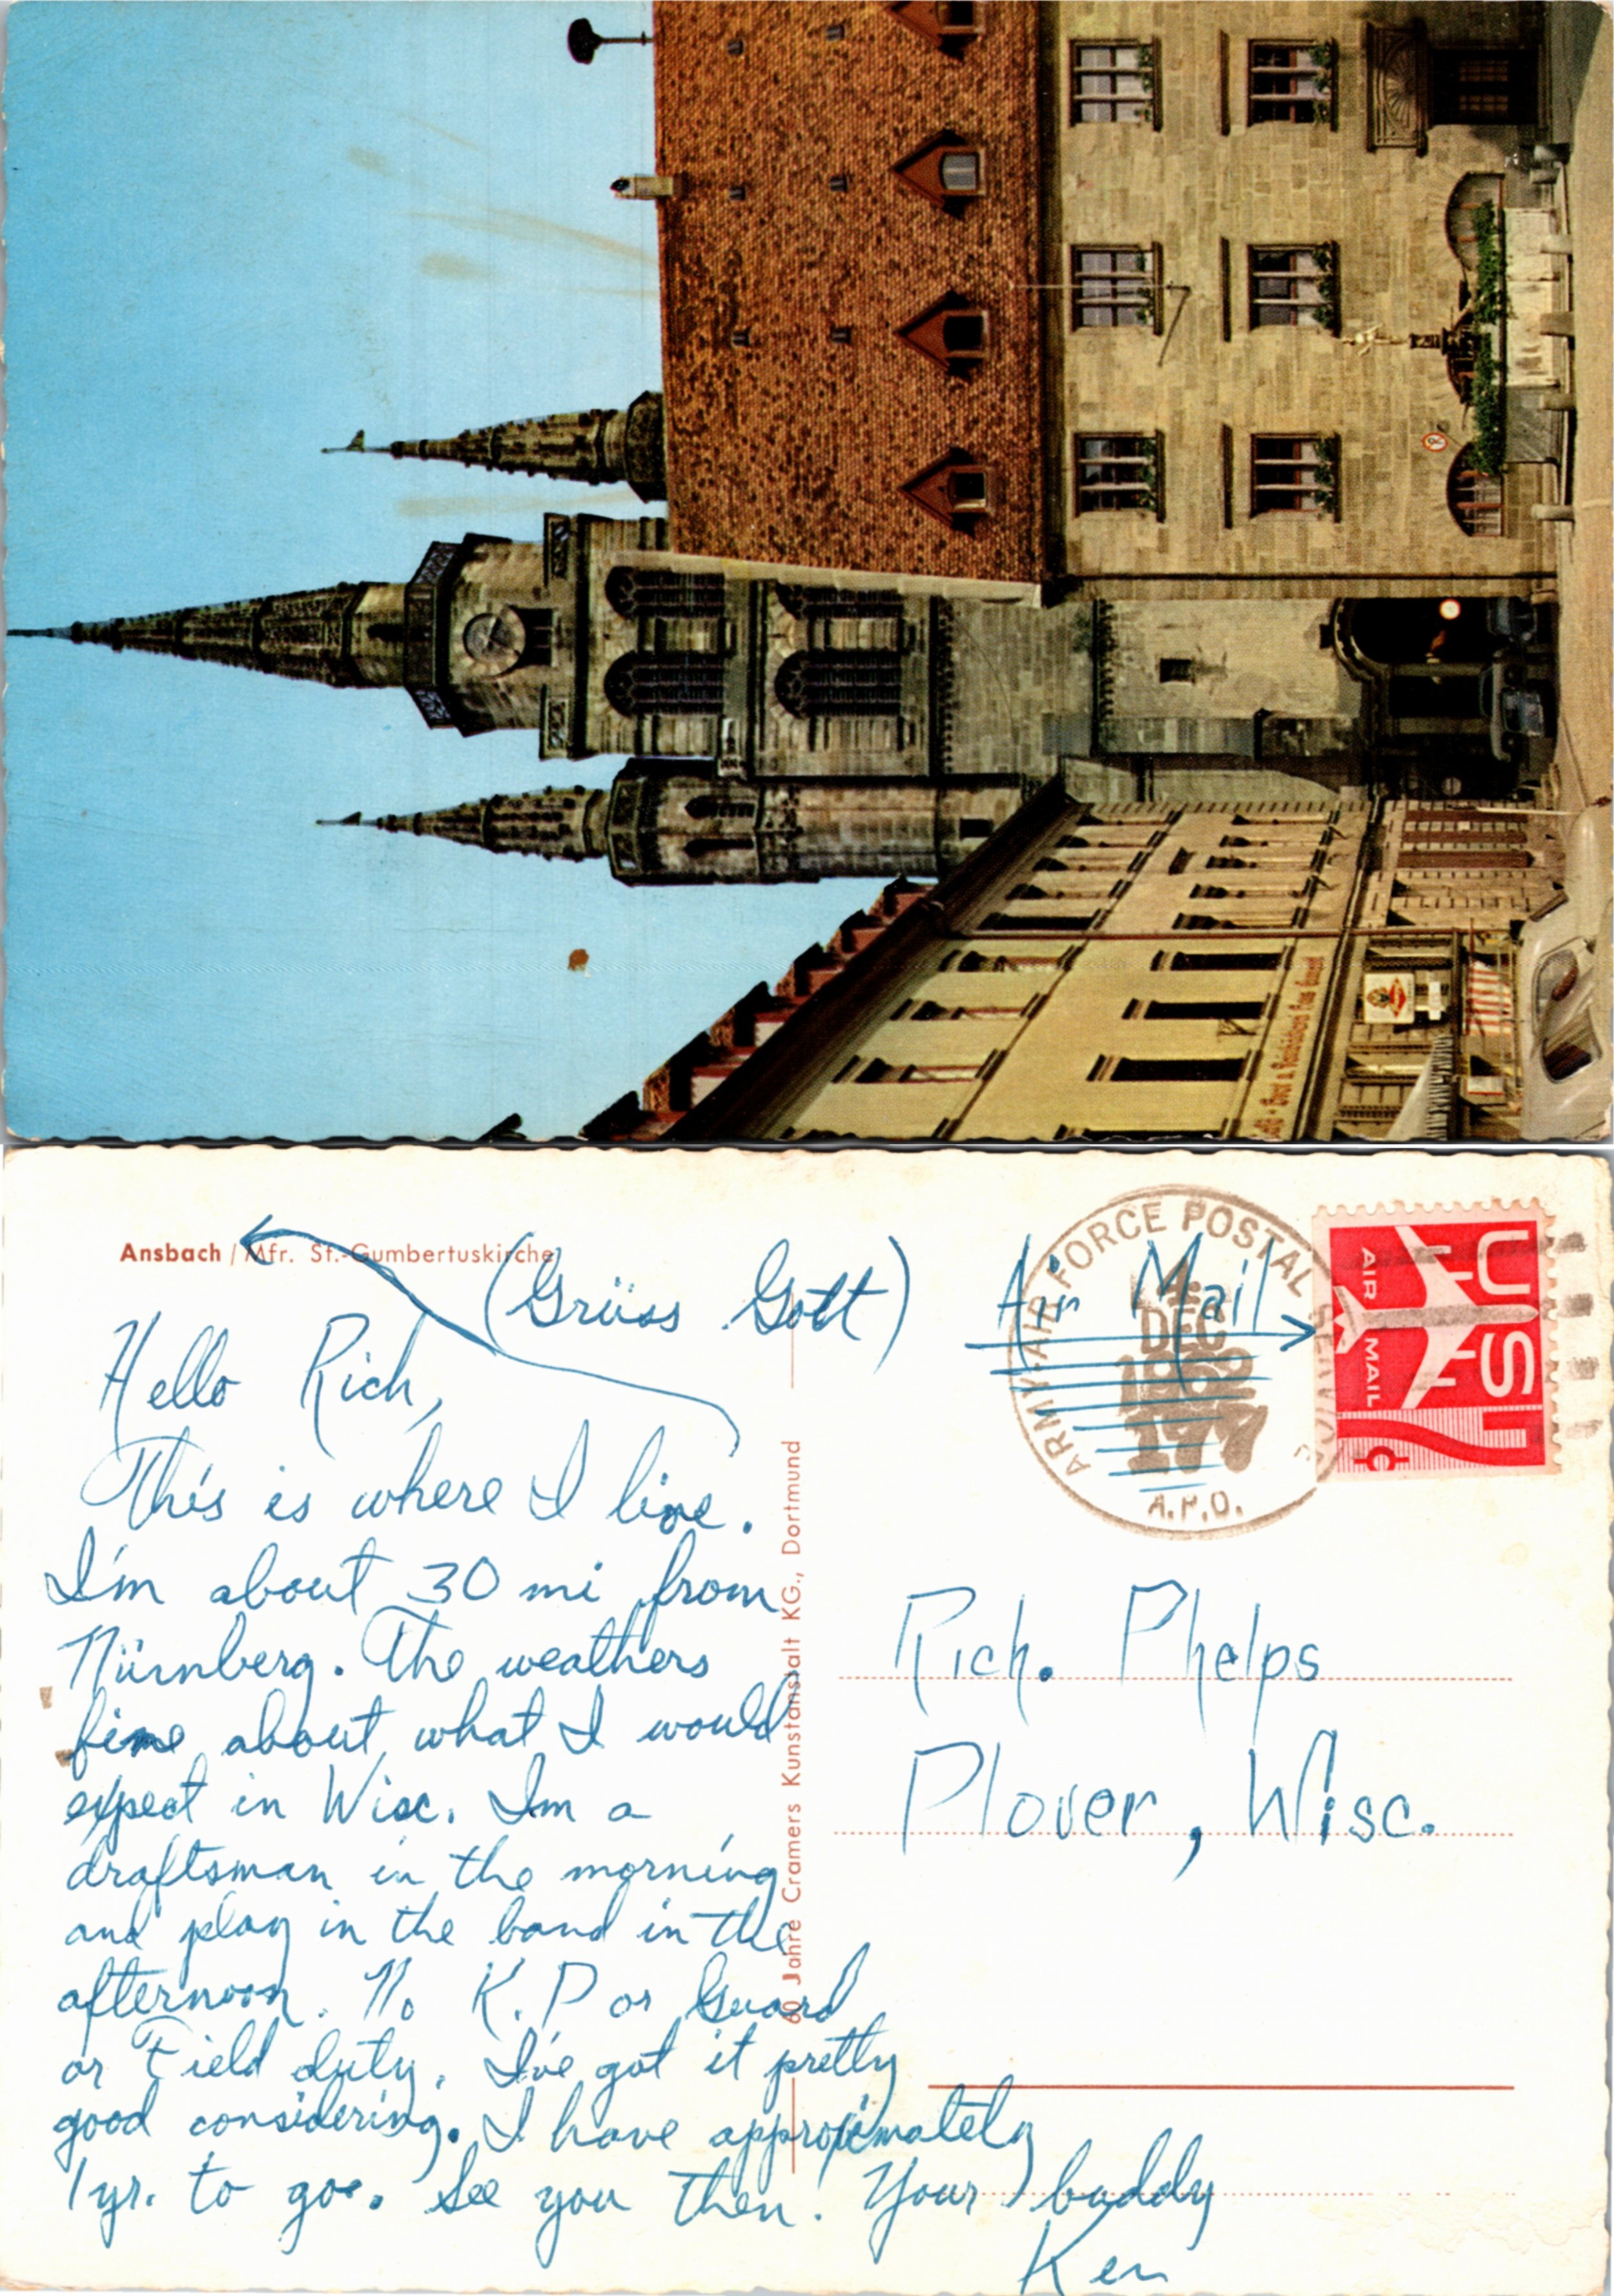 Ansbach / Mfr. St.-Gumbertuskirche
(Grüss Gott)
Air Mail
ARMY-AIR FORCE POSTAL SERVICE
DEC
1962
177
A.P.O.
US
AIR MAIL
7¢
Hello Rich,
This is where I live.
I'm about 30 mi from
Nürnberg. The weathers
fine about what I would
expect in Wisc. Im a
draftsman in the morning
and play in the band in the
afternoon. No K.P or Guard
or Field duty. I've got it pretty
good considering. I have approximately
1yr. to go. See you then! Your buddy
Ken
60 Jahre Cramers Kunstanstalt KG., Dortmund
Rich. Phelps
Plover, Wisc.